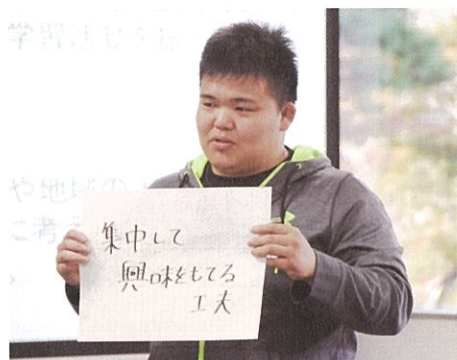 学習活
や地域の
に考え
集中して
興味をもてる
工夫